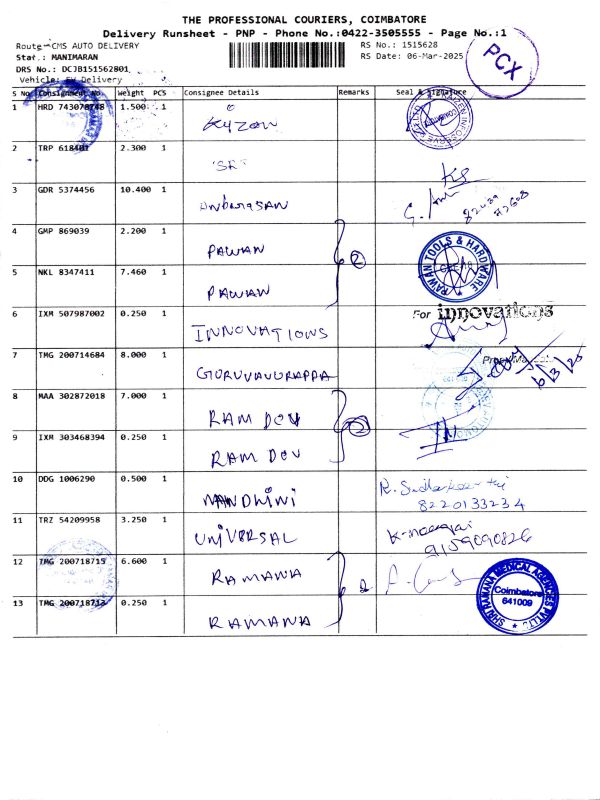 THE PROFESSIONAL COURIERS, COIMBATORE
Delivery Runsheet - PNP - Phone No.:0422-3505555 - Page No.:1
Route :CMS AUTO DELIVERY
RS No.: 1515628
PCX
Staf.: MANIMARAN
RS Date: 06-Mar-2025
DRS No.: DCJB151562801
Vehicle: EV Delivery
S No Consignment No Weight PCS Consignee Details Remarks Seal & Signature
1 HRD 743078748 1.500 1 KYZEN
2 TRP 618401 2.300 1 SRT
3 GDR 5374456 10.400 1 ANBARASAN
4 GMP 869039 2.200 1 PAWAN
2
PAWAN TOOLS & HARDWARE
5 NKL 8347411 7.460 1 PAWAN
6 IXM 507987002 0.250 1 INNOVATIONS For innovations
7 TMG 200714684 8.000 1 GURUVAURAPPA
6/3/25
8 MAA 302872018 7.000 1 RAM DEV
2
9 IXM 303468394 0.250 1 RAM DEV
10 DDG 1006290 0.500 1 NANDHINI
8220133234
11 TRZ 54209958 3.250 1 UNIVERSAL
9159090826
12 TMG 200718715 6.600 1 RAMANA
2
SHRI RAMANA MEDICAL AGENCIES PVT LTD
Coimbatore
641009
13 TMG 200718713 0.250 1 RAMANA